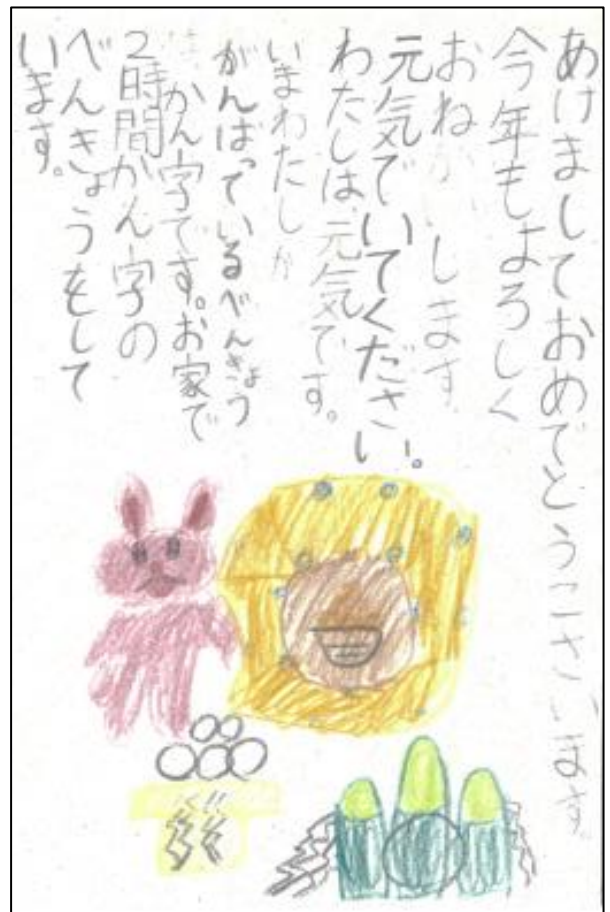 あけましておめでとうございます
今年もよろしく
おねがいします
元気でいてください。
わたしは、元気です。
いまわたしが
がんばっているべんきょう
は、かん字です。お家で
2時間かん字の
べんきょうをして
います。